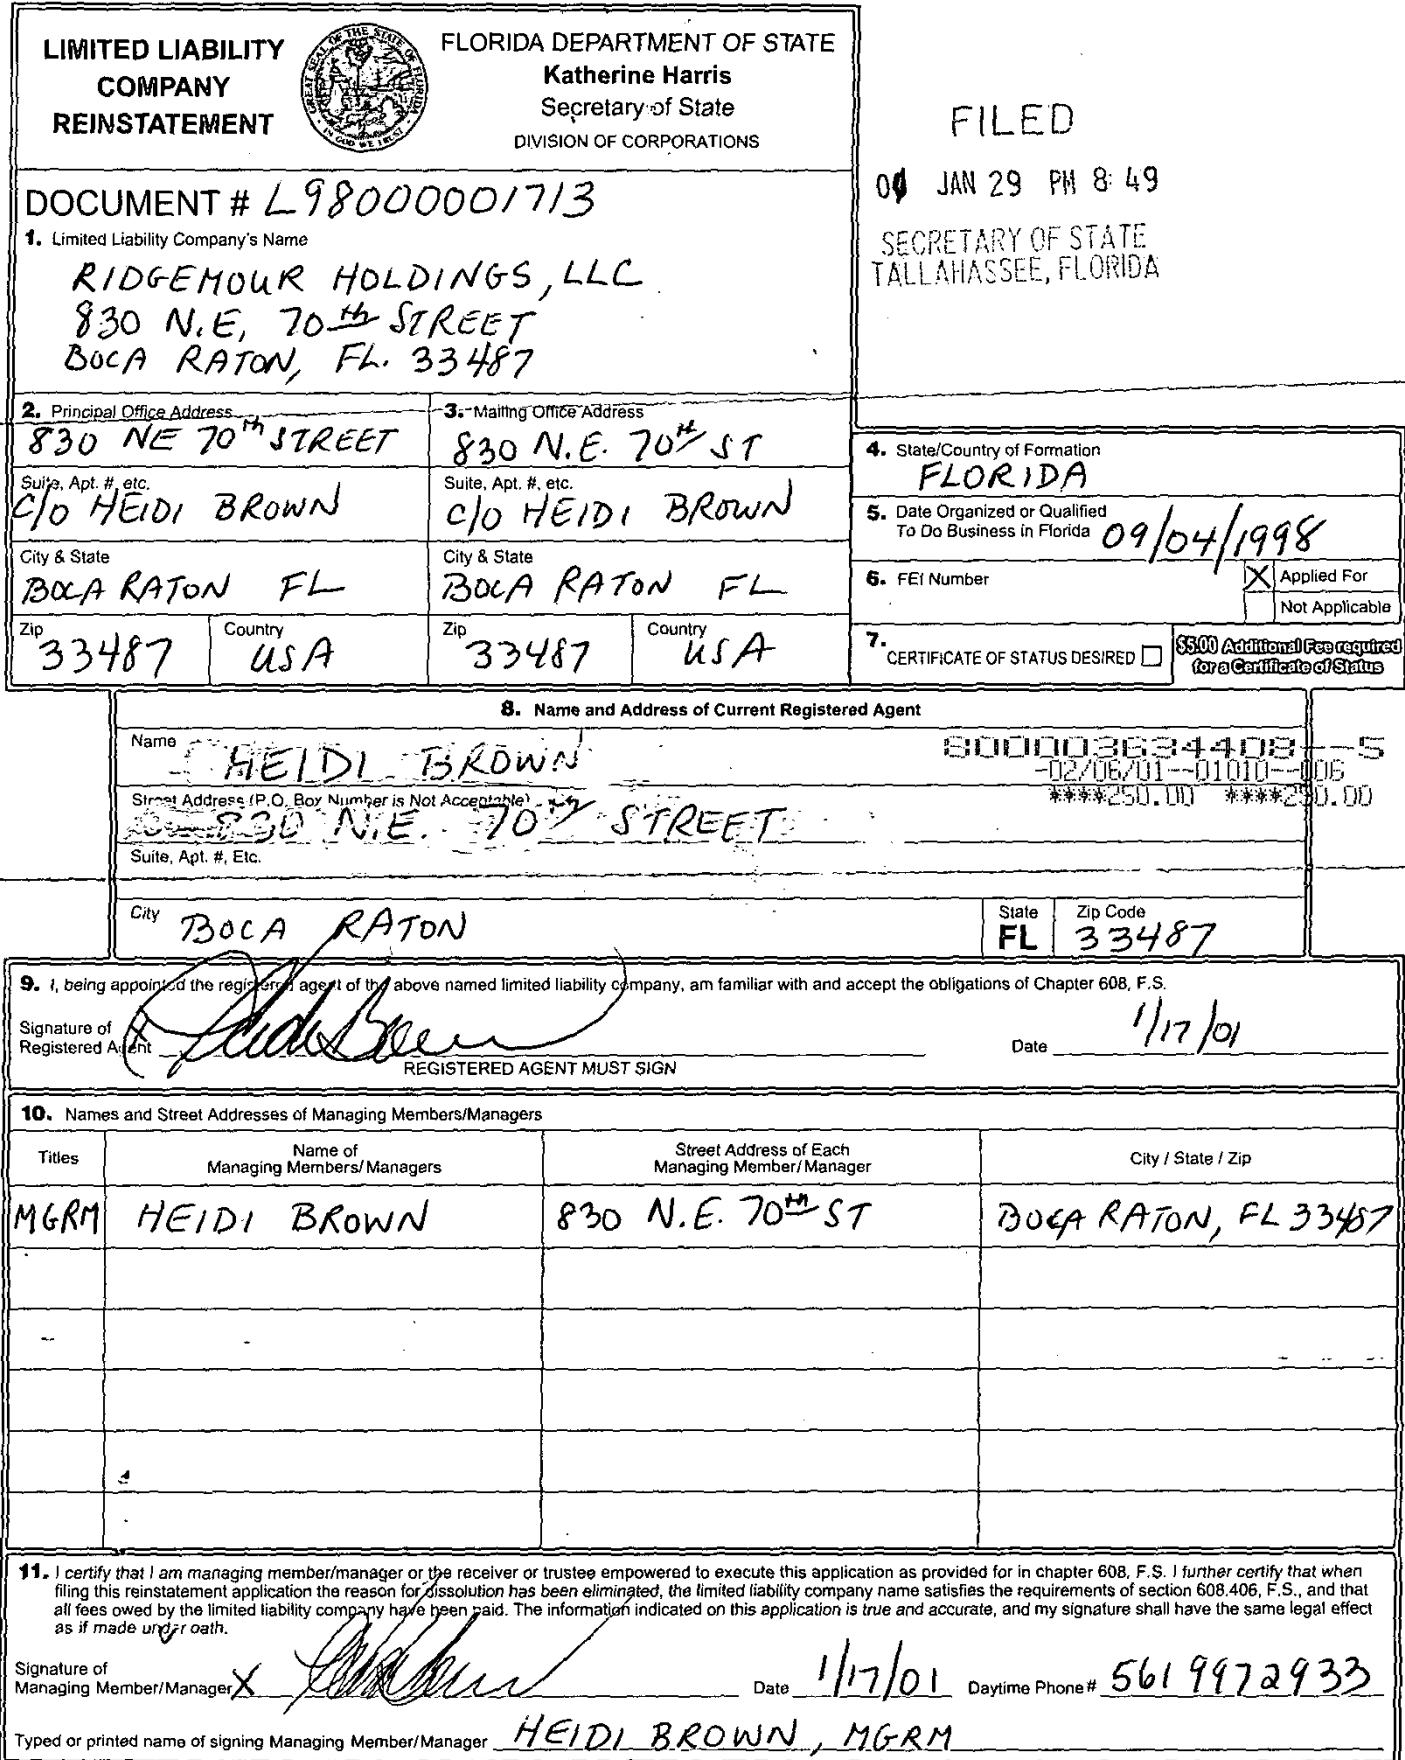 LIMITED LIABILITY
COMPANY
REINSTATEMENT
GREAT SEAL OF THE STATE OF FLORIDA
IN GOD WE TRUST
FLORIDA DEPARTMENT OF STATE
Katherine Harris
Secretary of State
DIVISION OF CORPORATIONS
FILED
JAN 29 PM 8:49
SECRETARY OF STATE
TALLAHASSEE, FLORIDA
DOCUMENT # L98000001713
1. Limited Liability Company's Name
RIDGEMOUR HOLDINGS, LLC
830 N.E, 70th STREET
BOCA RATON, FL. 33487
2. Principal Office Address
830 NE 70th STREET
3. Mailing Office Address
830 N.E. 70th ST
Suite, Apt. #, etc.
C/O HEIDI BROWN
Suite, Apt. #, etc.
C/O HEIDI BROWN
City & State
BOCA RATON FL
City & State
BOCA RATON FL
Zip
33487
Country
USA
Zip
33487
Country
USA
4. State/Country of Formation
FLORIDA
5. Date Organized or Qualified
To Do Business in Florida 09/04/1998
6. FEI Number
X Applied For
Not Applicable
7. CERTIFICATE OF STATUS DESIRED
$5.00 Additional Fee required
for a Certificate of Status
8. Name and Address of Current Registered Agent
Name HEIDI BROWN
800003634408--5
-02/06/01--01010--006
****250.00 ****250.00
Street Address (P.O. Box Number is Not Acceptable)
830 N.E. 70th STREET
Suite, Apt. #, Etc.
City BOCA RATON
State
FL
Zip Code
33487
9. I, being appointed the registered agent of the above named limited liability company, am familiar with and accept the obligations of Chapter 608, F.S.
Signature of
Registered Agent X Heidi Brown
Date 1/17/01
REGISTERED AGENT MUST SIGN
10. Names and Street Addresses of Managing Members/Managers
Titles
Name of
Managing Members/Managers
Street Address of Each
Managing Member/Manager
City / State / Zip
MGRM HEIDI BROWN 830 N.E. 70th ST BOCA RATON, FL 33487
11. I certify that I am managing member/manager or the receiver or trustee empowered to execute this application as provided for in chapter 608, F.S. I further certify that when
filing this reinstatement application the reason for dissolution has been eliminated, the limited liability company name satisfies the requirements of section 608.406, F.S., and that
all fees owed by the limited liability company have been paid. The information indicated on this application is true and accurate, and my signature shall have the same legal effect
as if made under oath.
Signature of
Managing Member/Manager X Heidi Brown Date 1/17/01 Daytime Phone # 561 9972933
Typed or printed name of signing Managing Member/Manager HEIDI BROWN, MGRM